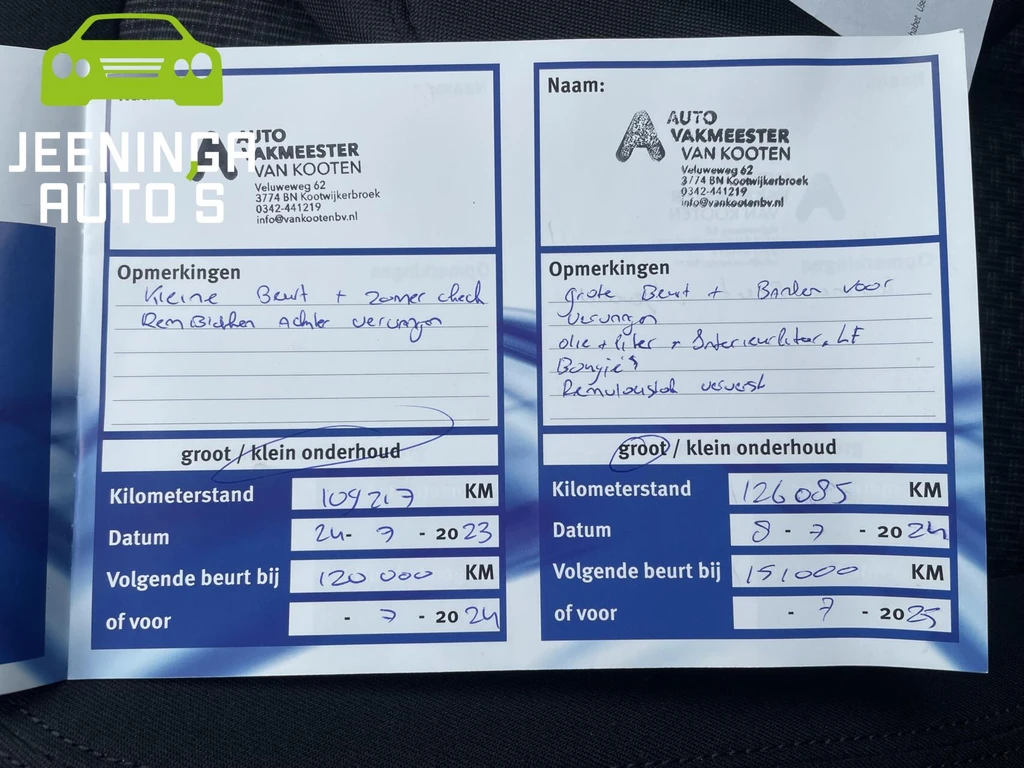 JEENINGA
AUTO'S
AUTO
VAKMEESTER
VAN KOOTEN
Veluweweg 62
3774 BN Kootwijkerbroek
0342-441219
info@vankootenbv.nl
Opmerkingen
Kleine Beurt + zomer check
Rem Blokken Achter vervangen
groot / klein onderhoud
Kilometerstand 109217 KM
Datum 24 - 7 - 2023
Volgende beurt bij 120 000 KM
of voor - 7 - 2024
Naam:
AUTO
VAKMEESTER
VAN KOOTEN
Veluweweg 62
3774 BN Kootwijkerbroek
0342-441219
info@vankootenbv.nl
Opmerkingen
grote Beurt + Banden voor
vervangen
olie + filter + Interieurfilter, LF
Bougie's
Remvloeistof ververst
groot / klein onderhoud
Kilometerstand 126085 KM
Datum 8 - 7 - 2024
Volgende beurt bij 151000 KM
of voor - 7 - 2025